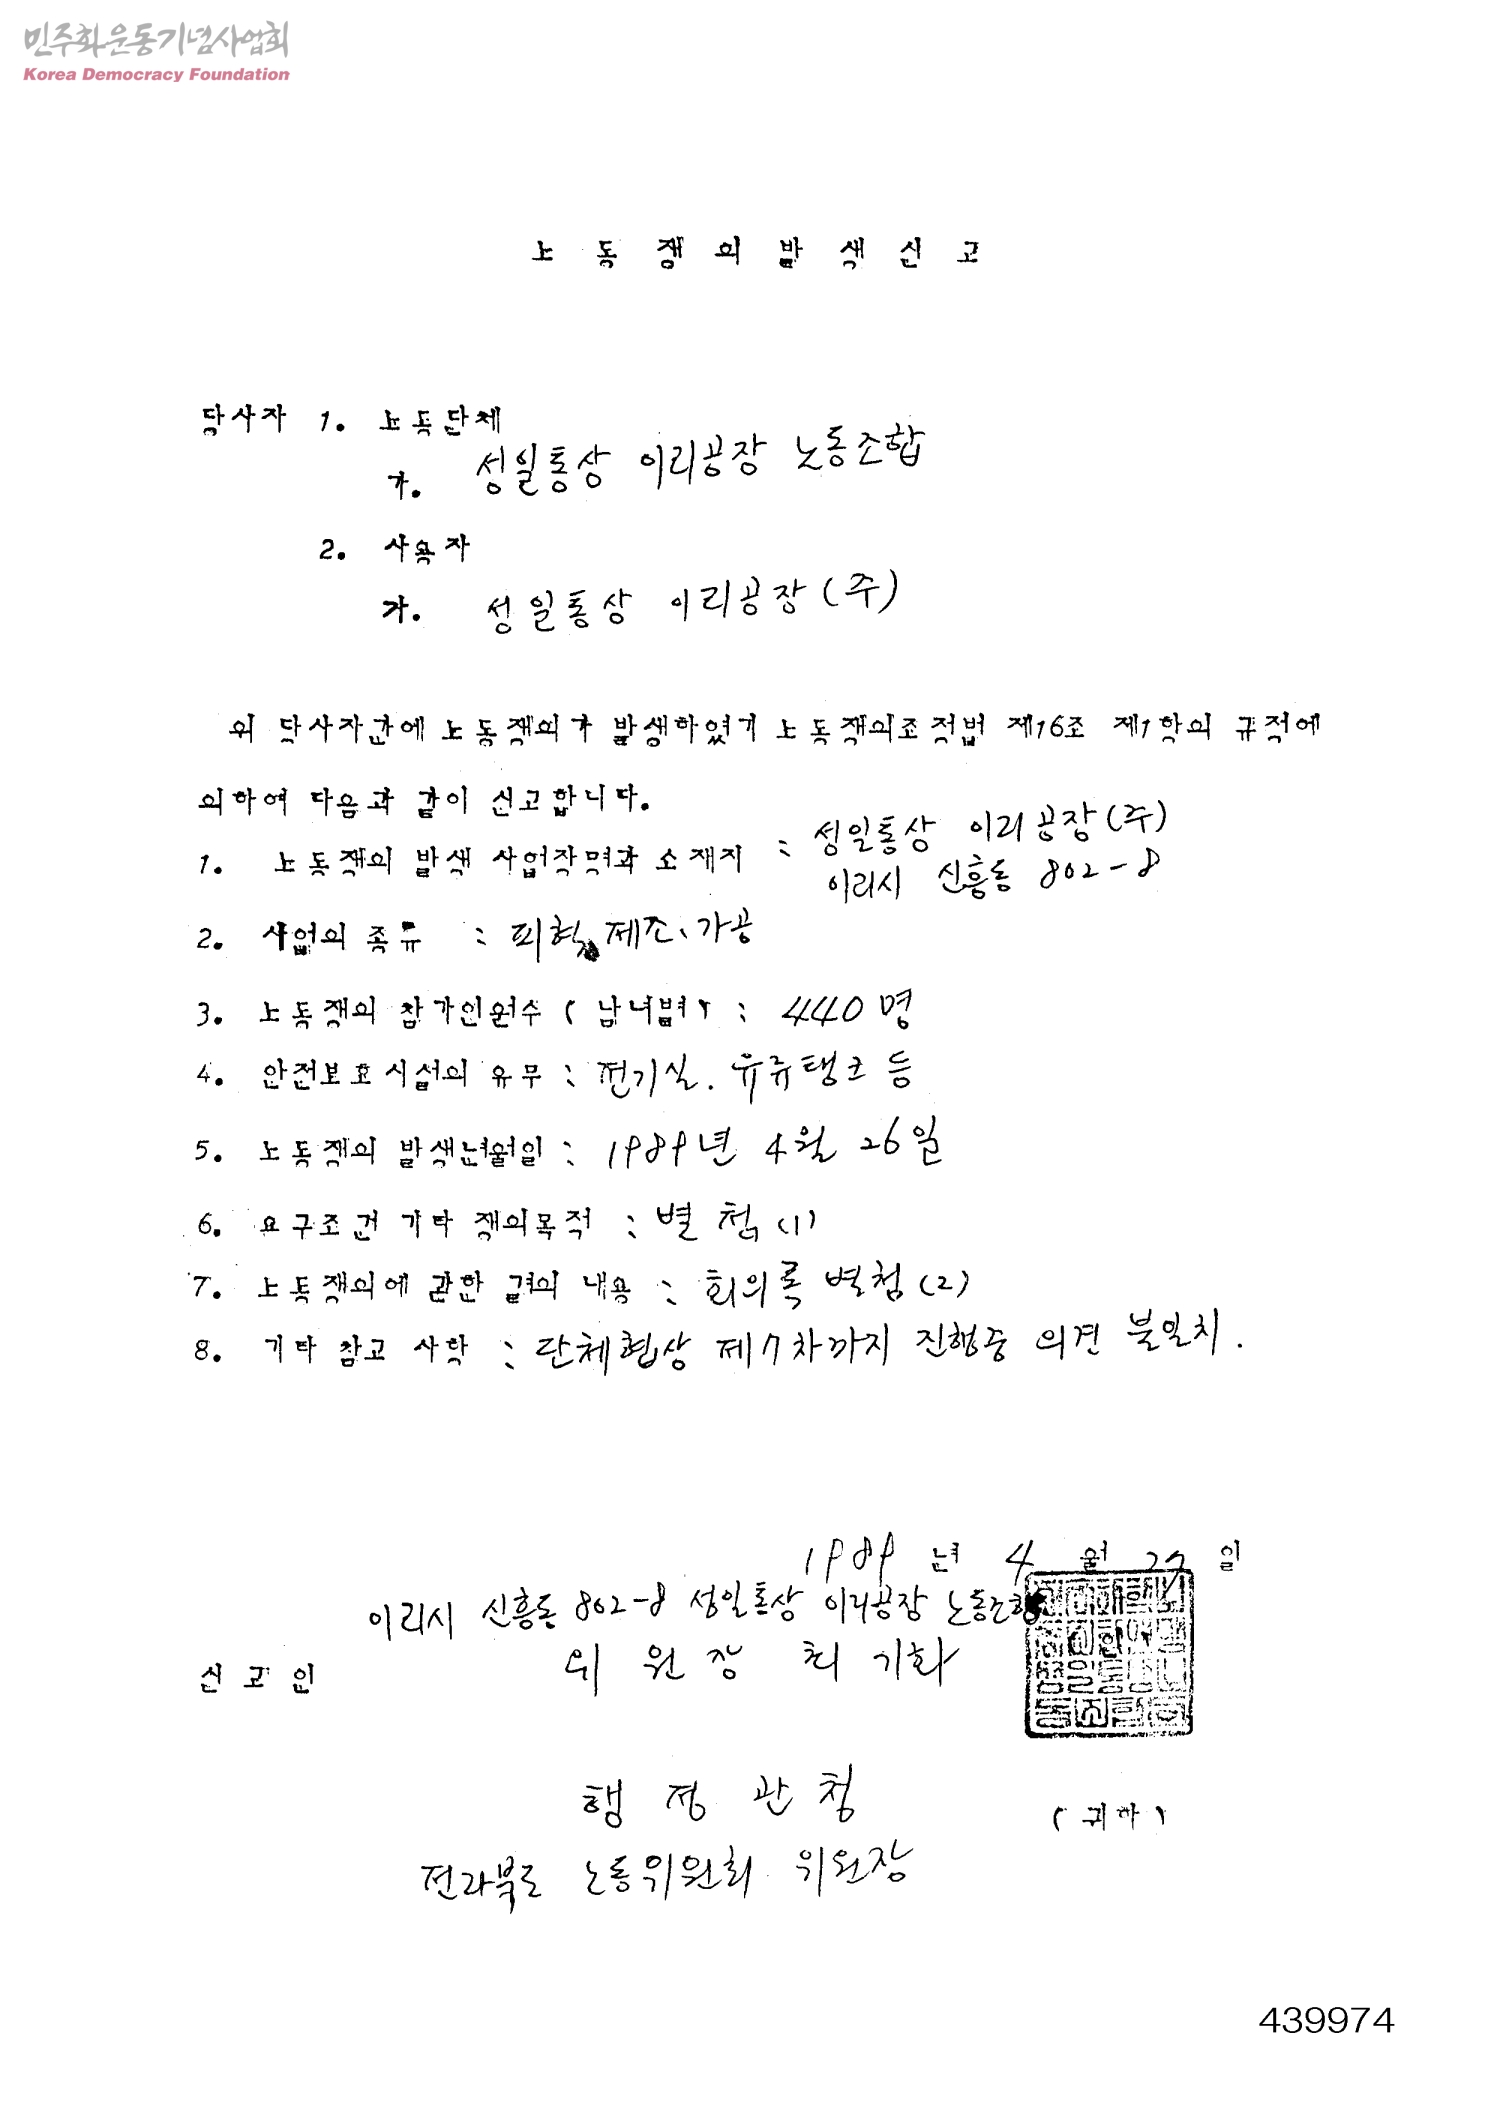 민주화운동기념사업회
Korea Democracy Foundation
노 동 쟁 의 발 생 신 고
당사자 1. 노동단체
가. 성일통상 이리공장 노동조합
2. 사용자
가. 성일통상 이리공장(주)
위 당사자간에 노동쟁의가 발생하였기 노동쟁의조정법 제16조 제1항의 규정에
의하여 다음과 같이 신고합니다.
1. 노동쟁의 발생 사업장명과 소재지 : 성일통상 이리공장(주)
이리시 신흥동 802-8
2. 사업의 종류 : 피혁, 제조, 가공
3. 노동쟁의 참가인원수 (남녀별) : 440명
4. 안전보호시설의 유무 : 전기실. 유류탱크 등
5. 노동쟁의 발생년월일 : 1989년 4월 26일
6. 요구조건 기타 쟁의목적 : 별첨(1)
7. 노동쟁의에 관한 결의 내용 : 회의록 별첨(2)
8. 기타 참고 사항 : 단체협상 제7차까지 진행중 의견 불일치.
1989 년 4 월 27 일
이리시 신흥동 802-8 성일통상 이리공장 노동조합
신 고 인 위 원 장 최 기화
행 정 관 청 (귀하)
전라북도 노동위원회 위원장
439974